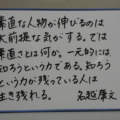 素直な人物が伸びるのは
大前提な気がする。では
素直さとは何か。一元的には
知ろうという力である。知ろう
という力が残っている人は
生き残れる。 名越康文